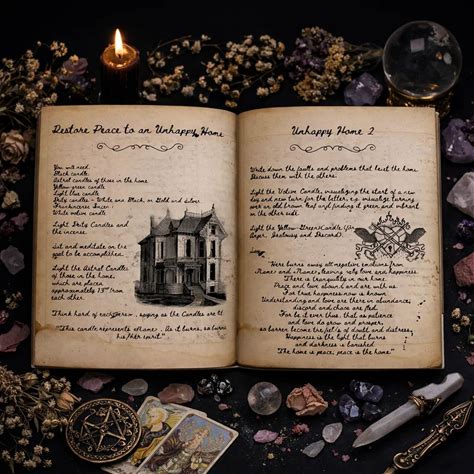 Restore Peace to an Unhappy Home
You will need
Black candle
Astral candles of those in the home
Yellow-green candle
Light blue candle
Deity candles - White and Black, or Gold and Silver
Frankincense Incense
White votive candle
Light Deity Candles and
the incense.
Sit and meditate on the
goal to be accomplished.
Light the Astral Candles
of those in the home,
which are placed
approximately 13" from
each other.
Think hard of each person, saying as the Candles are lit
"This candle represents <Name>. As it burns, so burns
his/her spirit."
Unhappy Home 2
Write down the faults and problems that beset the home.
Discuss them with the others.
Light the Votive Candle, visualizing the start of a new
day and new turn for the better, e.g. visualize turning
over an old brown leaf and finding it green and vibrant
on the other side.
Light the Yellow-Green Candle (for
Anger, Jealousy and Discord).
"Here burns away all negative emotions from
<Name> and <Name>, leaving only love and happiness.
There is tranquility in our home.
Peace and love abound and are with us.
For true happiness now is known.
Understanding and love are there in abundance,
discord and chaos are fled.
For be it ever thus, that as patience
and love do grow and prosper,
so barren become the fields of doubt and distress.
Happiness is the light that burns
and darkness is banished.
The home is peace, peace is the home."